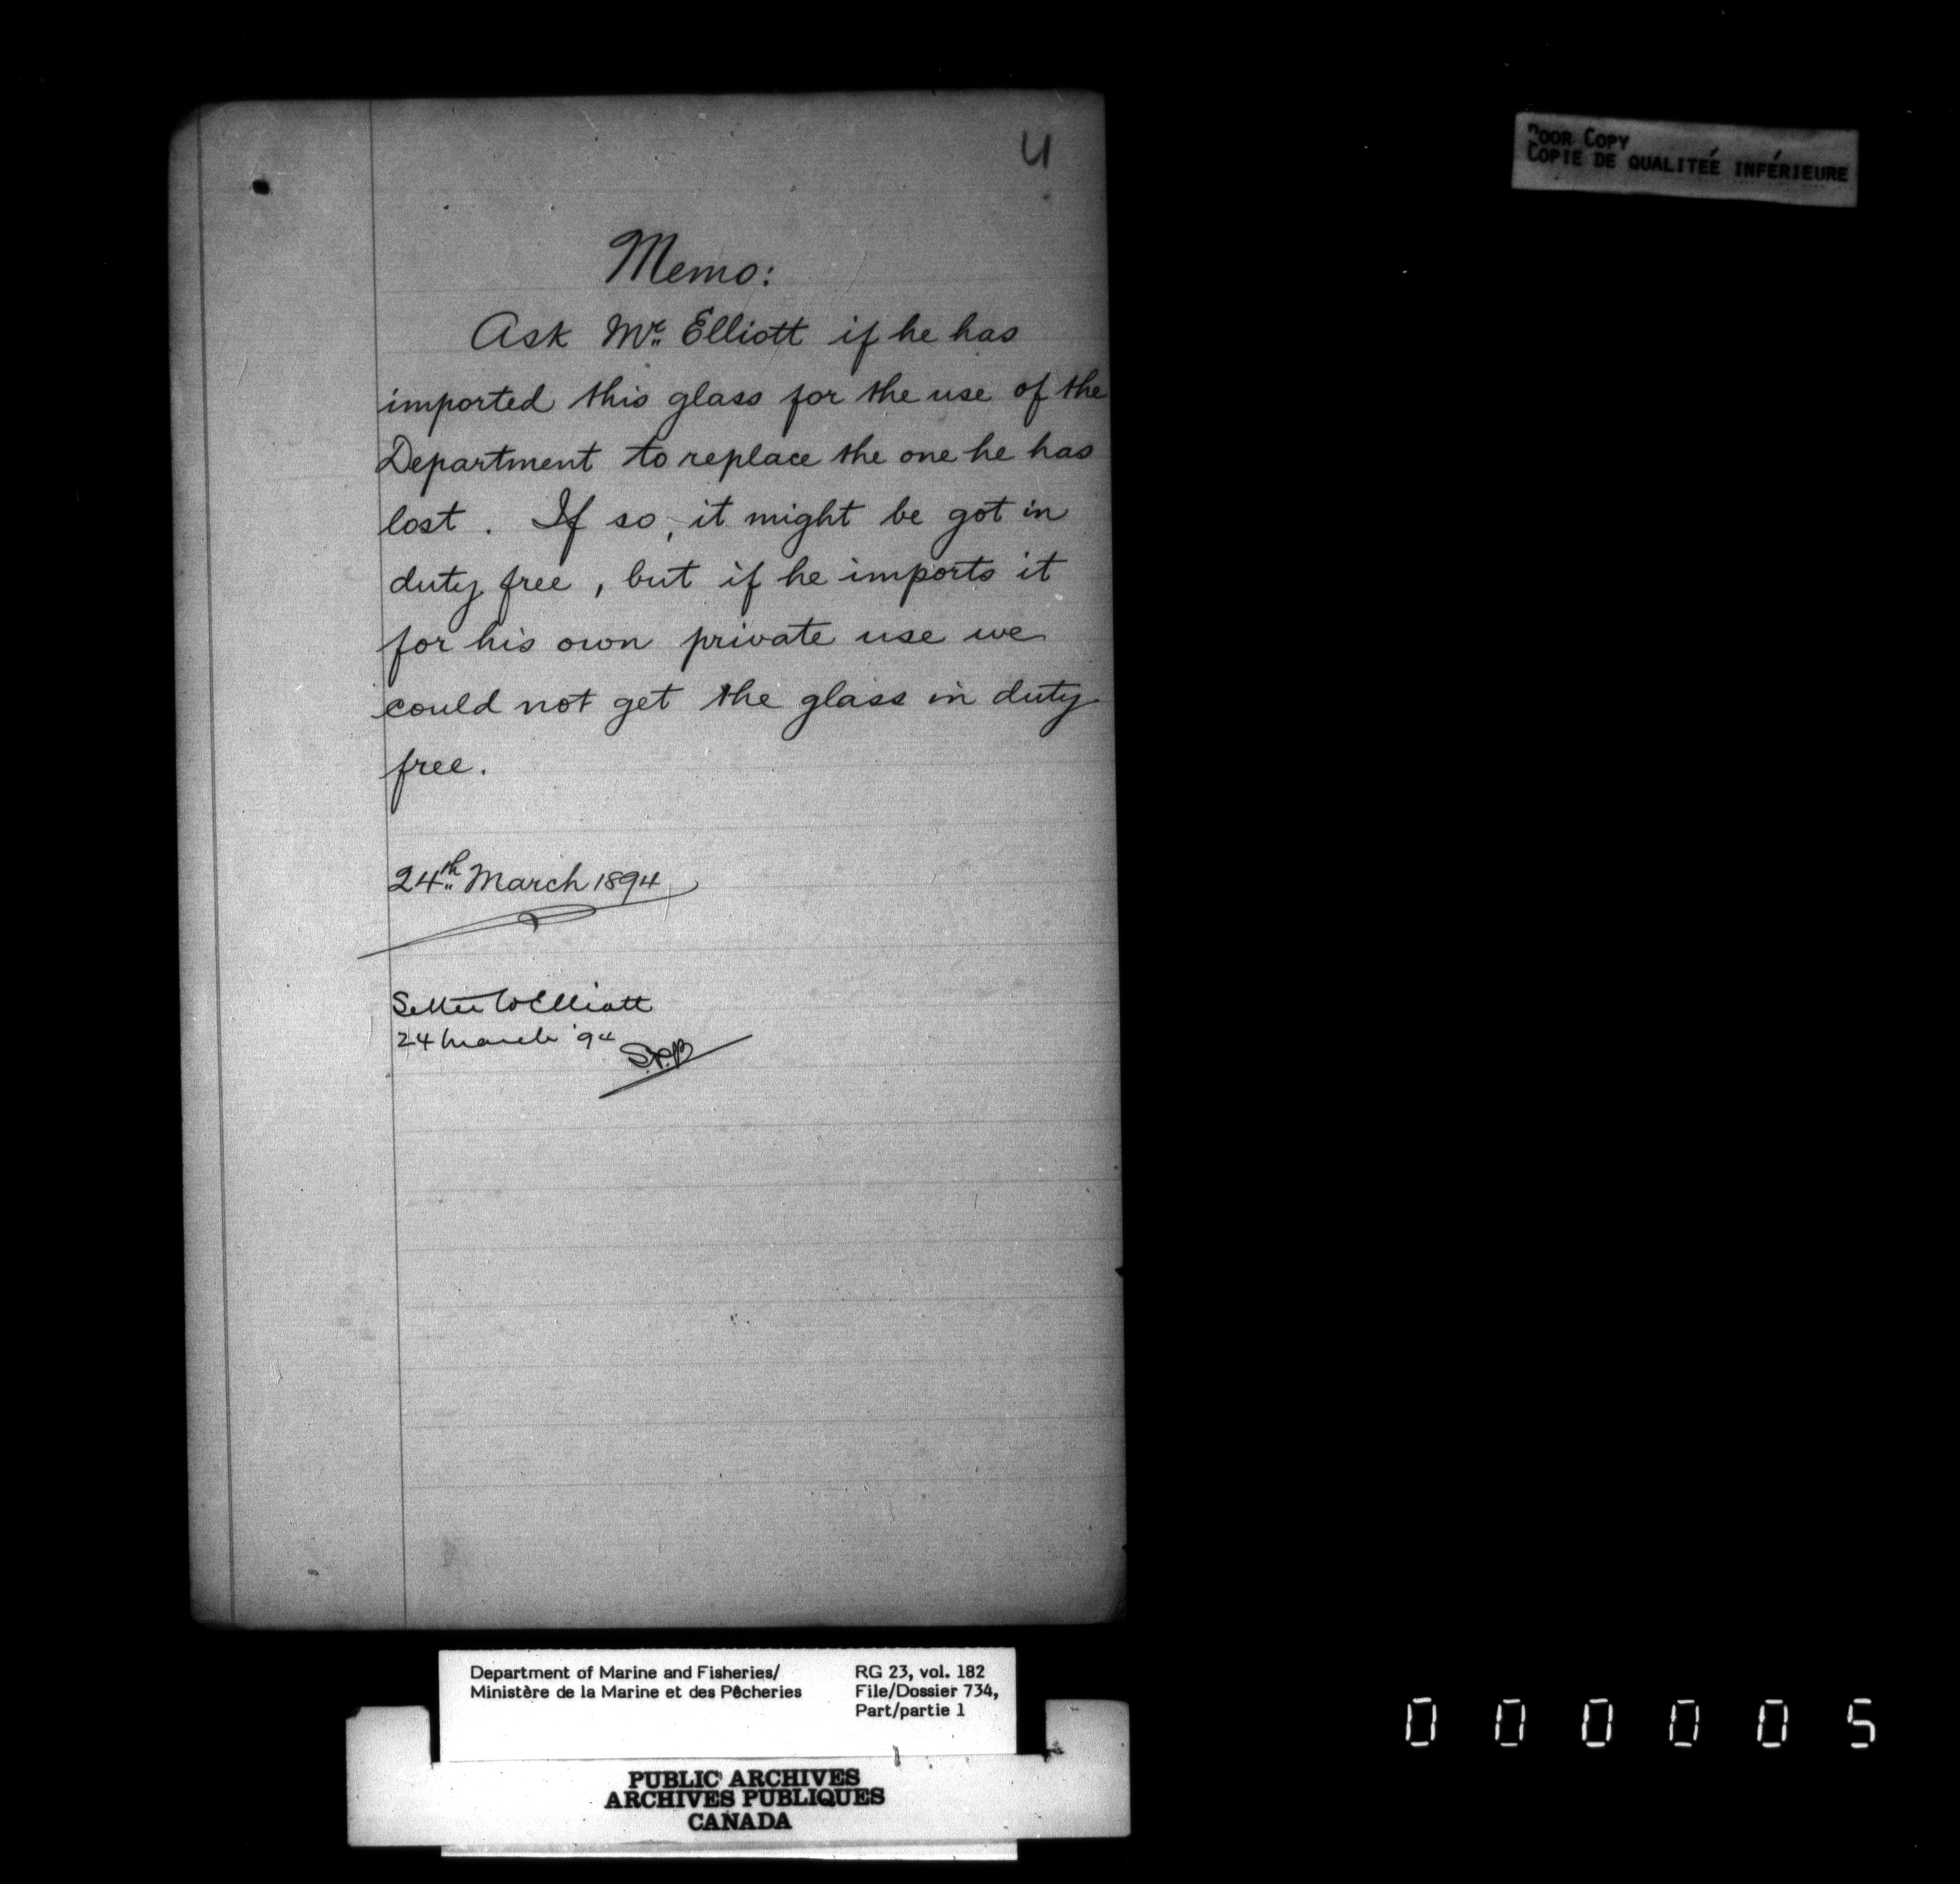 4
POOR COPY
COPIE DE QUALITEÉ INFÉRIEURE
Memo:
Ask Mr. Elliott if he has
imported this glass for the use of the
Department to replace the one he has
lost. If so, it might be got in
duty free, but if he imports it
for his own private use we
could not get the glass in duty
free.
24th March 1894
Elliott
24 March '94
S.P.B
Department of Marine and Fisheries/
Ministère de la Marine et des Pêcheries
RG 23, vol. 182
File/Dossier 734,
Part/partie 1
PUBLIC ARCHIVES
ARCHIVES PUBLIQUES
CANADA
0 0 0 0 0 5